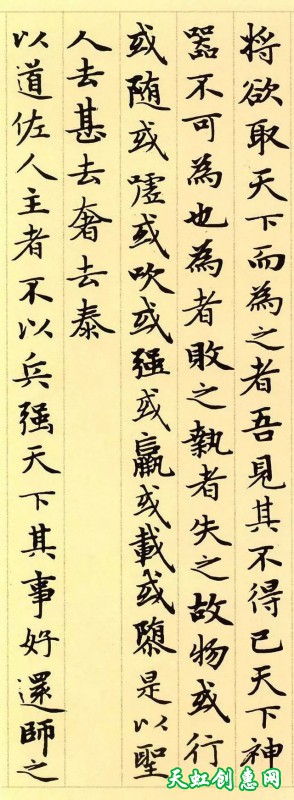 将欲取天下而為之者吾見其不得已天下神
器不可為也為者敗之執者失之故物或行
或随或嘘或吹或强或羸或載或隳是以聖
人去甚去奢去泰
以道佐人主者不以兵强天下其事好還師之
天虹创惠网